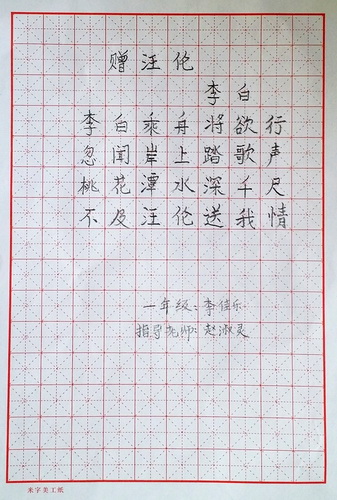 赠汪伦
李白
李白乘舟将欲行
忽闻岸上踏歌声
桃花潭水深千尺
不及汪伦送我情
一年级：李佳乐
指导老师：赵淑灵
米字美工纸